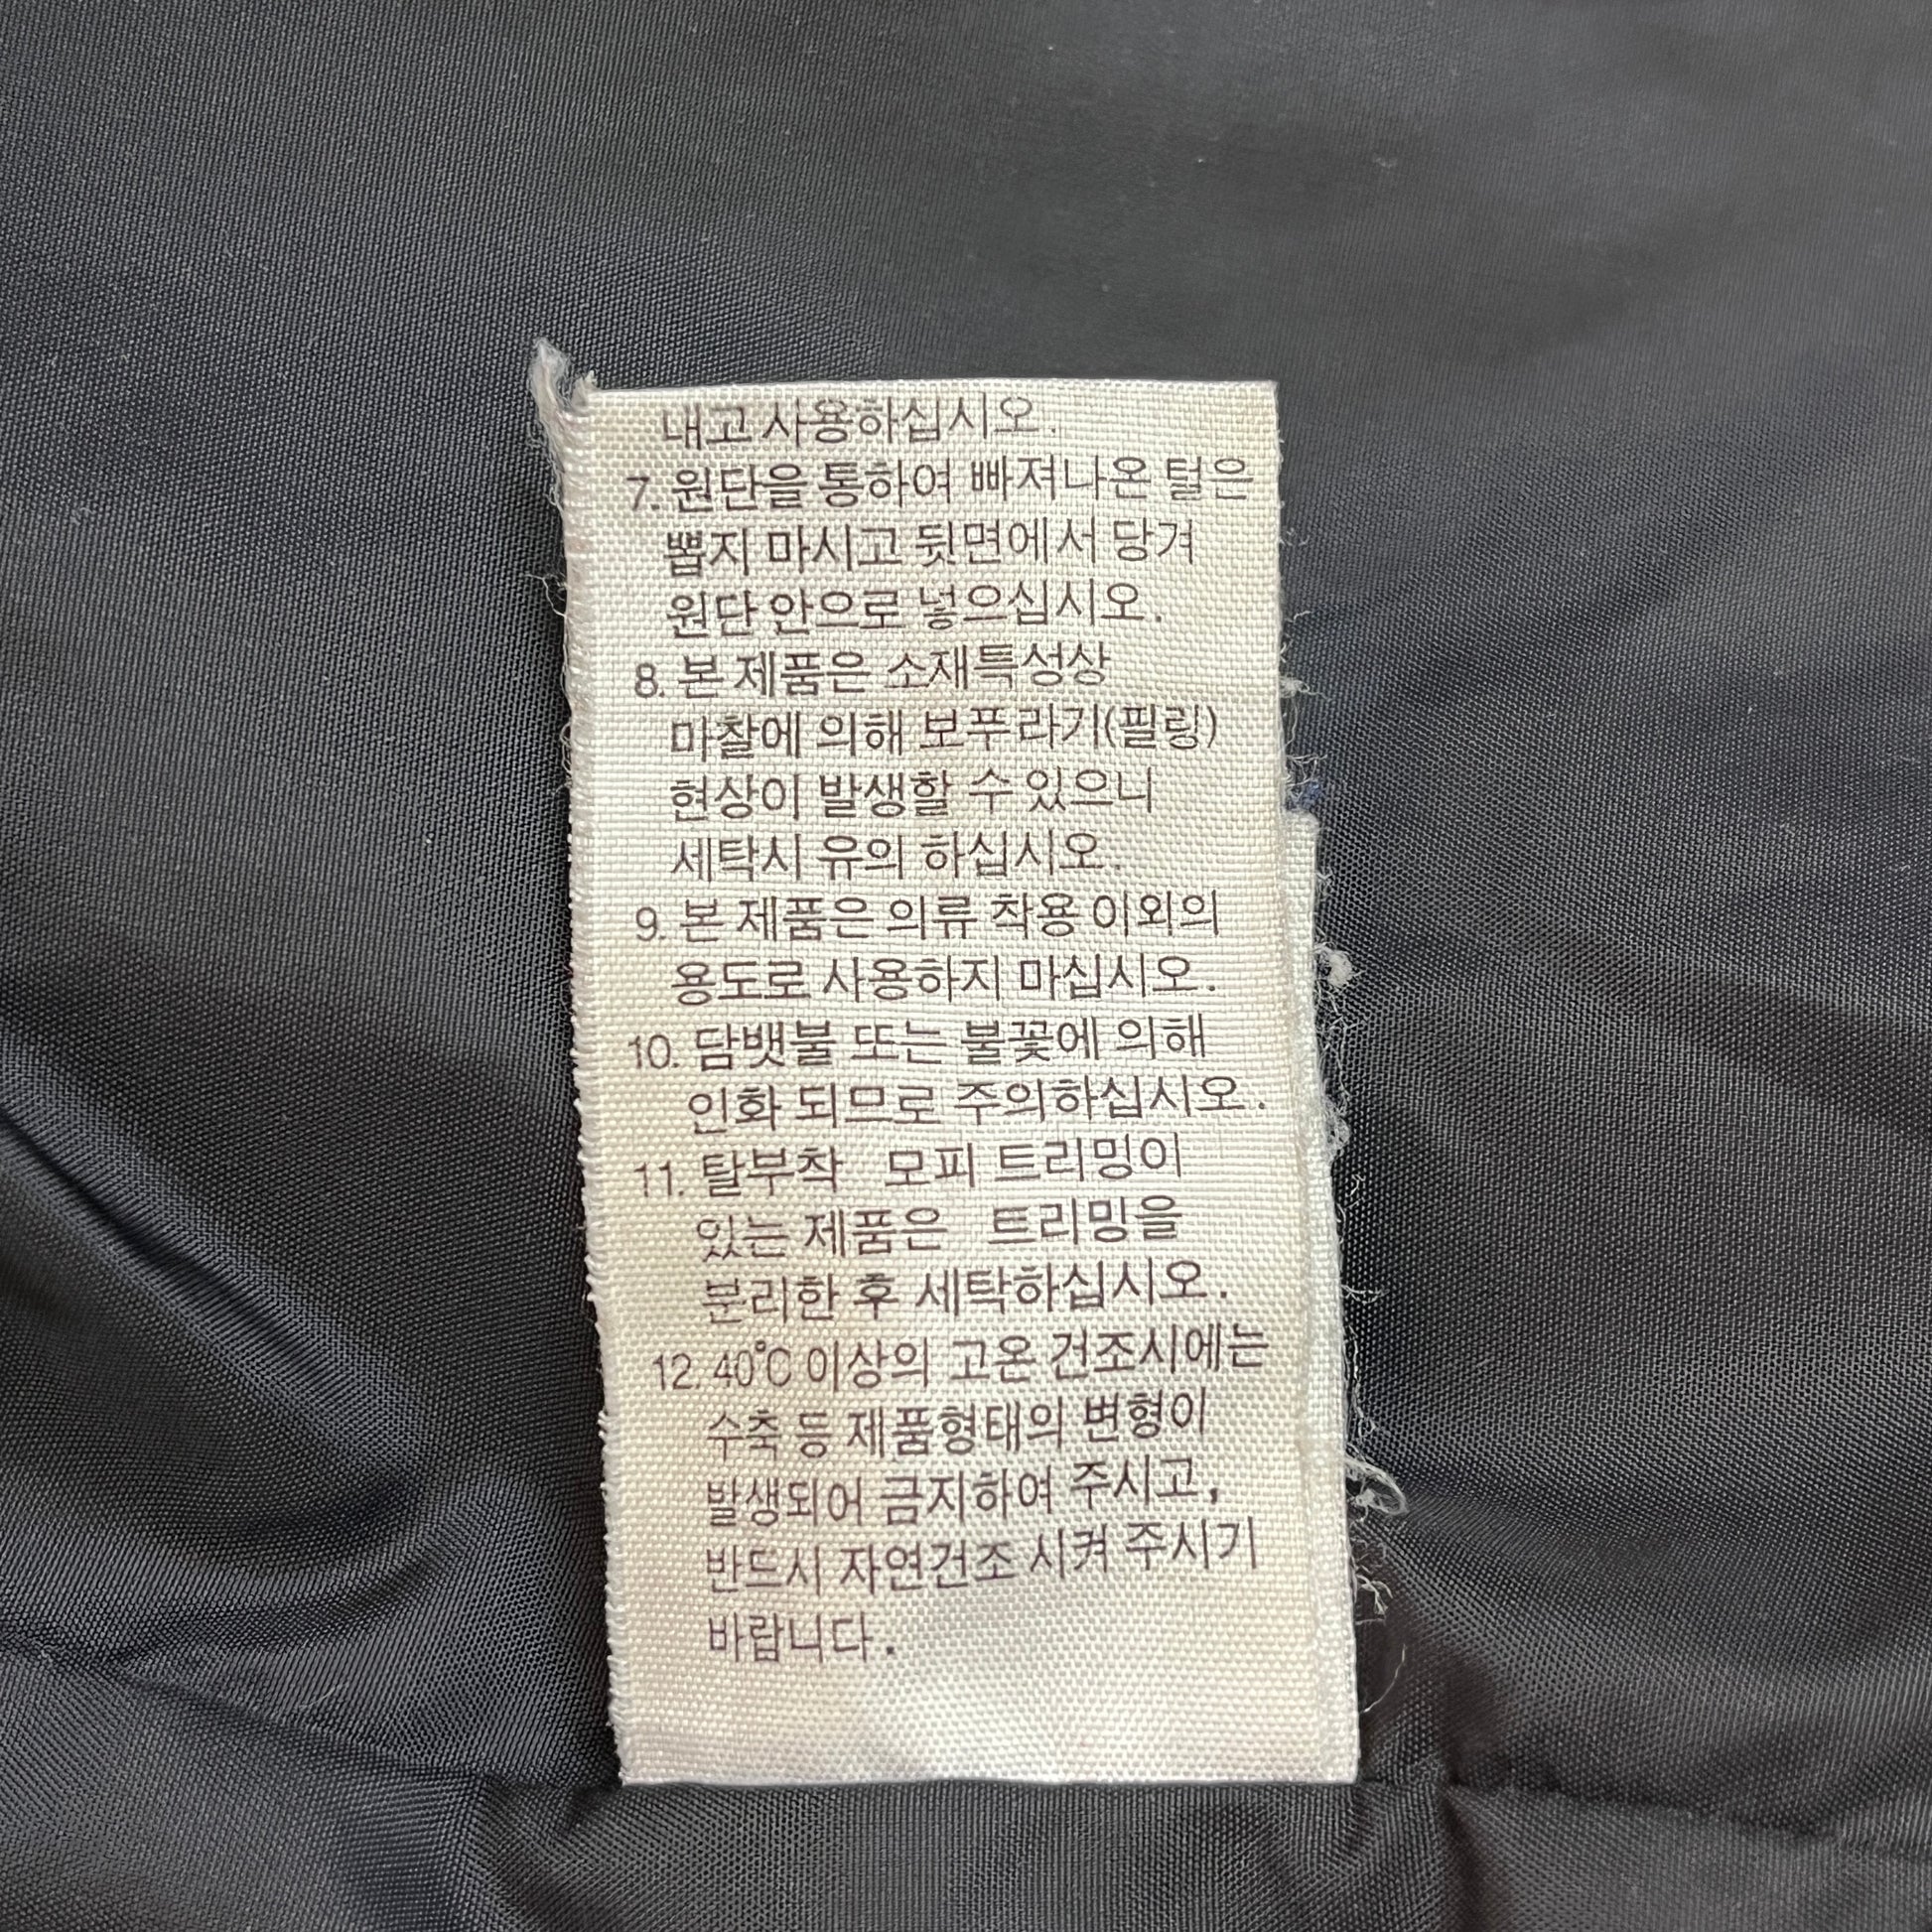 내고 사용하십시오.
7. 원단을 통하여 빠져나온 털은
뽑지 마시고 뒷면에서 당겨
원단 안으로 넣으십시오.
8. 본 제품은 소재특성상
마찰에 의해 보푸라기(필링)
현상이 발생할 수 있으니
세탁시 유의 하십시오.
9. 본 제품은 의류 착용 이외의
용도로 사용하지 마십시오.
10. 담뱃불 또는 불꽃에 의해
인화 되므로 주의하십시오.
11. 탈부착 모피 트리밍이
있는 제품은 트리밍을
분리한 후 세탁하십시오.
12. 40℃ 이상의 고온 건조시에는
수축 등 제품형태의 변형이
발생되어 금지하여 주시고,
반드시 자연건조 시켜 주시기
바랍니다.